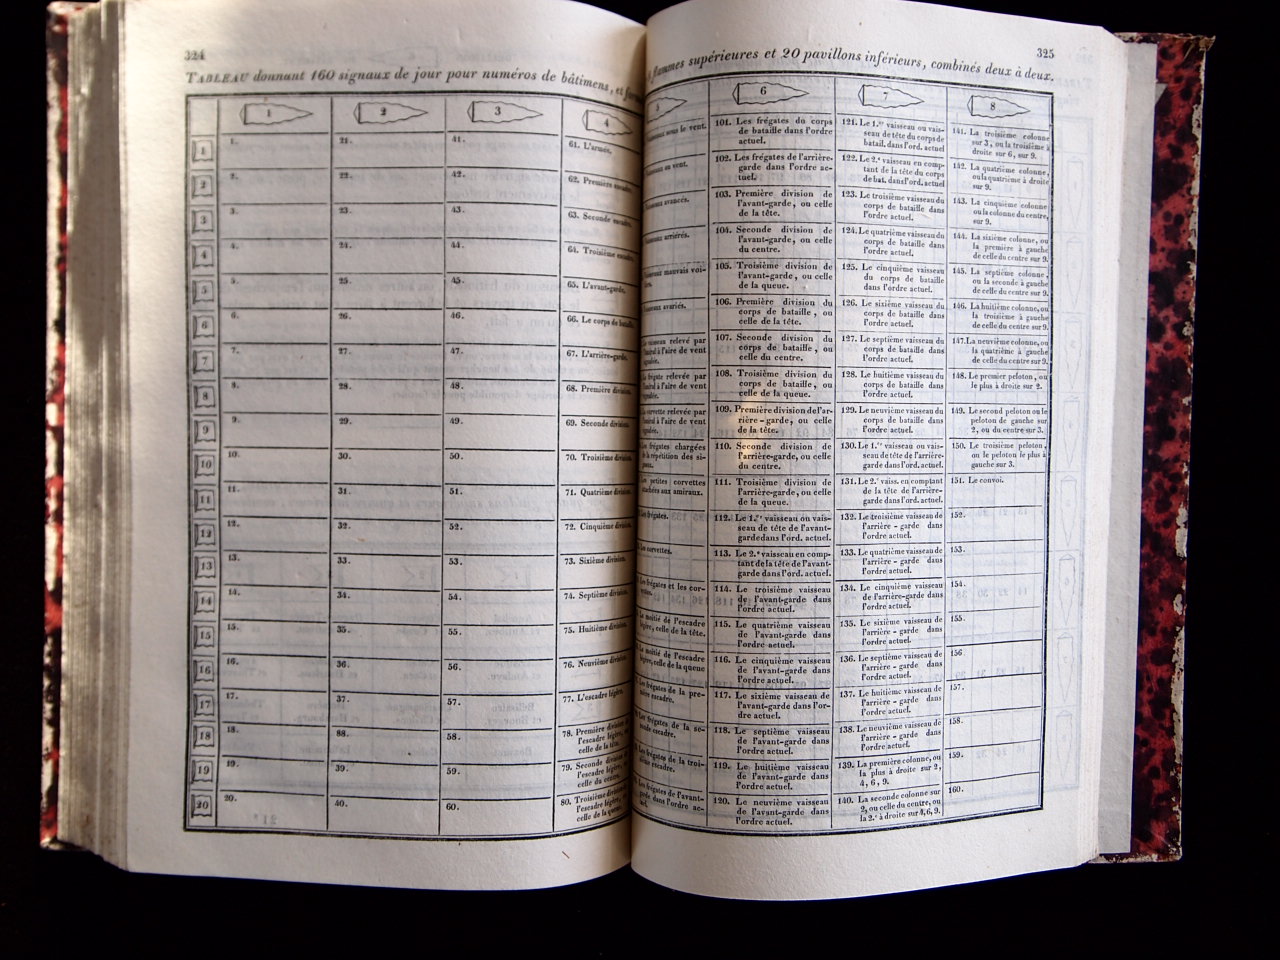 324
TABLEAU donnant 160 signaux de jour pour numéros de bâtimens, et
1
2
3
4
1. 21. 41. 61. L'armée.
2. 22. 42. 62. Première escadre.
3. 23. 43. 63. Seconde escadre.
4. 24. 44. 64. Troisième escadre.
5. 25. 45. 65. L'avant-garde.
6. 26. 46. 66. Le corps de bataille.
7. 27. 47. 67. L'arrière-garde.
8. 28. 48. 68. Première division.
9. 29. 49. 69. Seconde division.
10. 30. 50. 70. Troisième division.
11. 31. 51. 71. Quatrième division.
12. 32. 52. 72. Cinquième division.
13. 33. 53. 73. Sixième division.
14. 34. 54. 74. Septième division.
15. 35. 55. 75. Huitième division.
16. 36. 56. 76. Neuvième division.
17. 37. 57. 77. L'escadre légère.
18. 88. 58. 78. Première division
l'escadre légère, ou
celle de la tête.
19. 39. 59. 79. Seconde division
l'escadre légère, ou
celle du centre.
20. 40. 60. 80. Troisième division
l'escadre légère, ou
celle de la queue.
325
flammes supérieures et 20 pavillons inférieurs, combinés deux à deux.
5
sous le vent.
au vent.
avancés.
arriérés.
mauvais voi-
avariés.
vaisseau relevé par
l'aire de vent
frégate relevée par
l'aire de vent
corvette relevée par
l'aire de vent
Les frégates chargées
de la répétition des si-
gnaux.
Les petites corvettes
attachées aux amiraux.
Les frégates.
Les corvettes.
frégates et les cor-
moitié de l'escadre
légère, celle de la tête.
moitié de l'escadre
légère, celle de la queue
frégates de la pre-
escadre.
frégates de la se-
escadre.
frégates de la troi-
escadre.
frégates de l'avant-
garde dans l'ordre ac-
6
101. Les frégates du corps
de bataille dans l'ordre
actuel.
102. Les frégates de l'arrière-
garde dans l'ordre ac-
tuel.
103. Première division de
l'avant-garde, ou celle
de la tête.
104. Seconde division de
l'avant-garde, ou celle
du centre.
105. Troisième division de
l'avant-garde, ou celle
de la queue.
106. Première division du
corps de bataille, ou
celle de la tête.
107. Seconde division du
corps de bataille, ou
celle du centre.
108. Troisième division du
corps de bataille, ou
celle de la queue.
109. Première division de l'ar-
rière-garde, ou celle
de la tête.
110. Seconde division de
l'arrière-garde, ou celle
du centre.
111. Troisième division de
l'arrière-garde, ou celle
de la queue.
112. Le 1.er vaisseau ou vais-
seau de tête de l'avant-
garde dans l'ord. actuel.
113. Le 2.e vaisseau en comp-
tant de la tête de l'avant-
garde dans l'ord. actuel.
114. Le troisième vaisseau
de l'avant-garde dans
l'ordre actuel.
115. Le quatrième vaisseau
de l'avant-garde dans
l'ordre actuel.
116. Le cinquième vaisseau
de l'avant-garde dans
l'ordre actuel.
117. Le sixième vaisseau de
l'avant-garde dans l'or-
dre actuel.
118. Le septième vaisseau
de l'avant-garde dans
l'ordre actuel.
119. Le huitième vaisseau
de l'avant-garde dans
l'ordre actuel.
120. Le neuvième vaisseau
de l'avant-garde dans
l'ordre actuel.
7
121. Le 1.er vaisseau ou vais-
seau de tête du corps de
batail. dans l'ord. actuel
122. Le 2.e vaisseau en comp-
tant de la tête du corps
de bat. dans l'ord. actuel
123. Le troisième vaisseau du
corps de bataille dans
l'ordre actuel.
124. Le quatrième vaisseau du
corps de bataille dans
l'ordre actuel.
125. Le cinquième vaisseau
du corps de bataille
dans l'ordre actuel.
126. Le sixième vaisseau du
corps de bataille dans
l'ordre actuel.
127. Le septième vaisseau du
corps de bataille dans
l'ordre actuel.
128. Le huitième vaisseau du
corps de bataille dans
l'ordre actuel.
129. Le neuvième vaisseau du
corps de bataille dans
l'ordre actuel.
130. Le 1.er vaisseau ou vais-
seau de tête de l'arrière-
garde dans l'ord. actuel.
131. Le 2.e vaiss. en comptant
de la tête de l'arrière-
garde dans l'ord. actuel.
132. Le troisième vaisseau de
l'arrière-garde dans
l'ordre actuel.
133. Le quatrième vaisseau de
l'arrière-garde dans
l'ordre actuel.
134. Le cinquième vaisseau
de l'arrière-garde dans
l'ordre actuel.
135. Le sixième vaisseau de
l'arrière-garde dans
l'ordre actuel.
136. Le septième vaisseau de
l'arrière-garde dans
l'ordre actuel.
137. Le huitième vaisseau de
l'arrière-garde dans
l'ordre actuel.
138. Le neuvième vaisseau de
l'arrière-garde dans
l'ordre actuel.
139. La première colonne, ou
la plus à droite sur 2,
4, 6, 9.
140. La seconde colonne sur
2, ou celle du centre, ou
la 2.e à droite sur 4, 6, 9.
8
141. La troisième colonne
sur 3, ou la troisième à
droite sur 6, sur 9.
142. La quatrième colonne,
ou la quatrième à droite
sur 9.
143. La cinquième colonne
ou la colonne du centre,
sur 9.
144. La sixième colonne, ou
la première à gauche
de celle du centre sur 9.
145. La septième colonne,
ou la seconde à gauche
de celle du centre sur 9.
146. La huitième colonne, ou
la troisième à gauche
de celle du centre sur 9.
147. La neuvième colonne, ou
la quatrième à gauche
de celle du centre sur 9.
148. Le premier peloton, ou
le plus à droite sur 2.
149. Le second peloton ou le
peloton de gauche sur
2, ou du centre sur 3.
150. Le troisième peloton,
ou le peloton le plus à
gauche sur 3.
151. Le convoi.
152.
153.
154.
155.
156
157.
158.
159.
160.